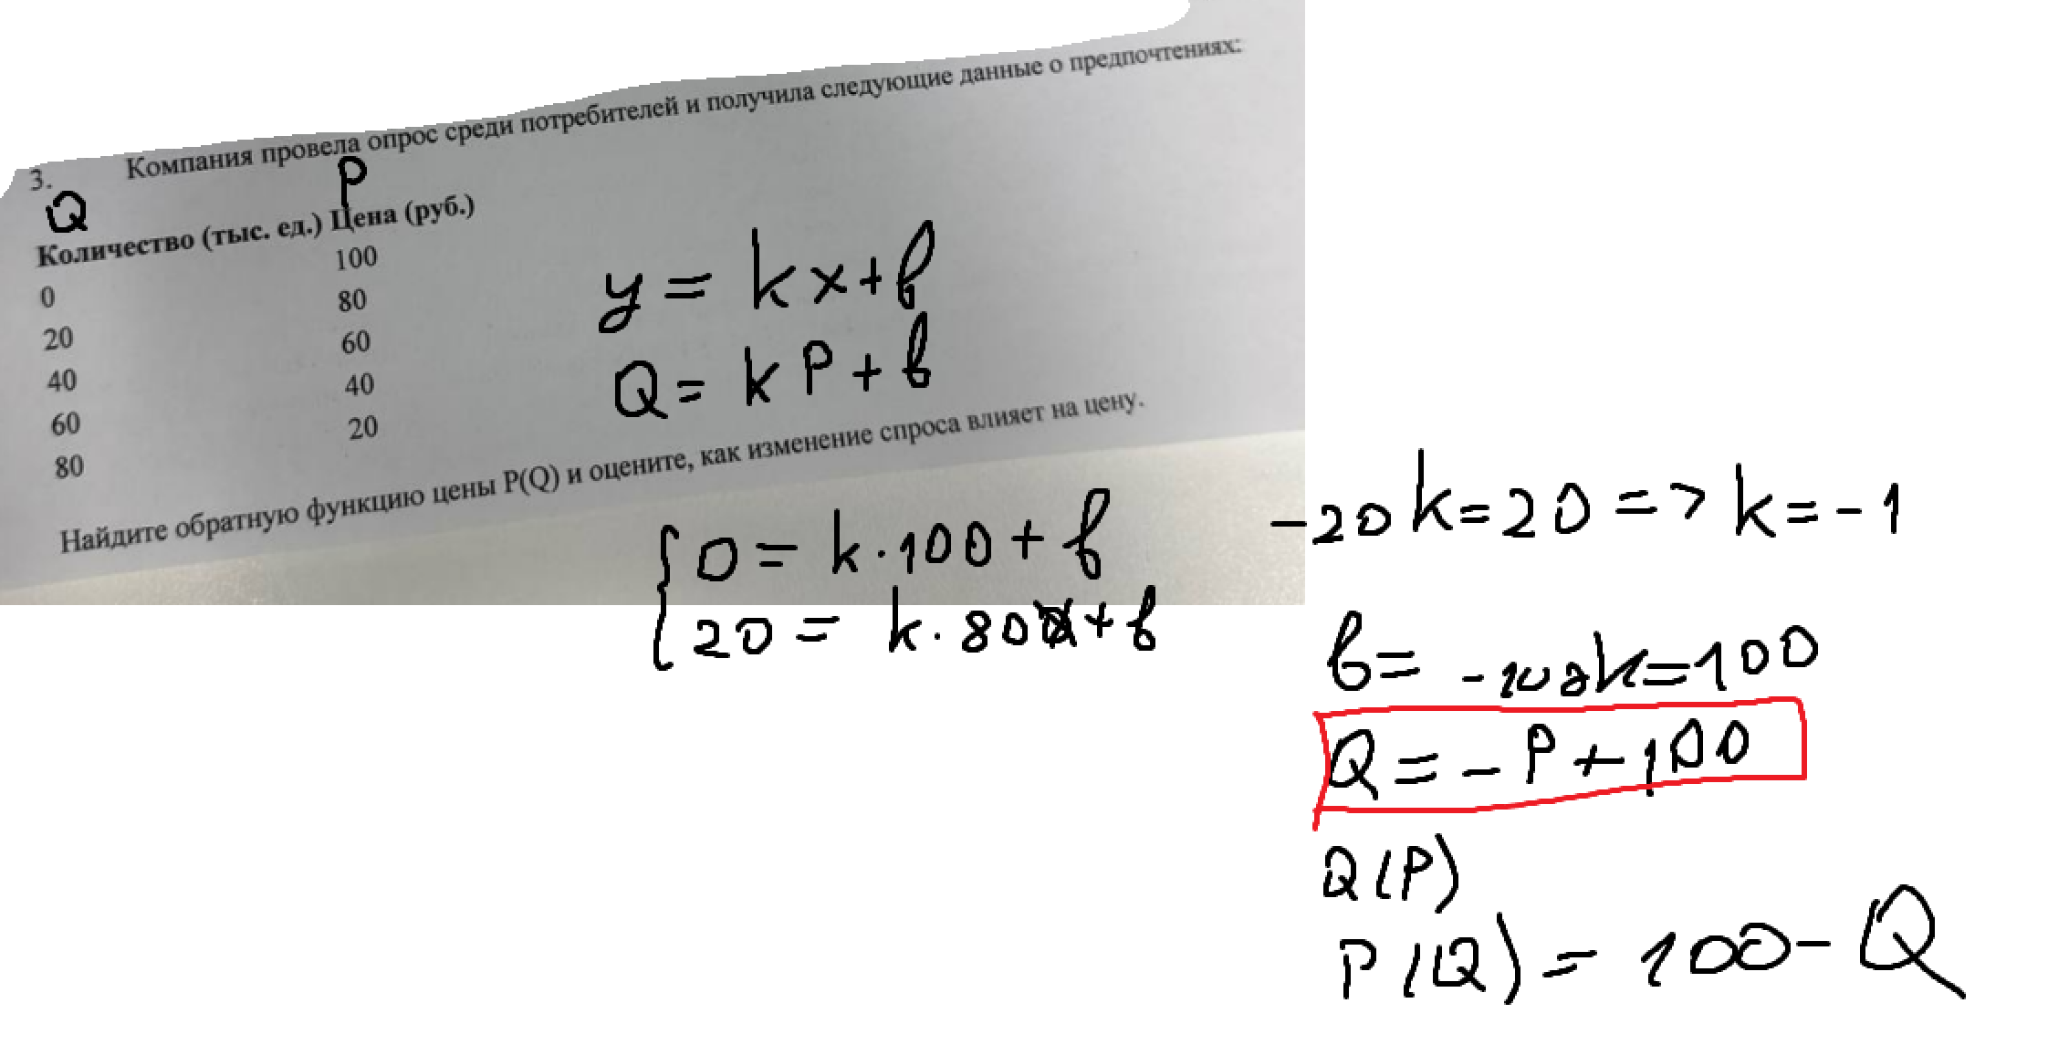 3. Компания провела опрос среди потребителей и получила следующие данные о предпочтениях:
Q P
Количество (тыс. ед.) Цена (руб.)
0 100
20 80
40 60
60 40
80 20
y = kx+b
Q = kP+b
Найдите обратную функцию цены P(Q) и оцените, как изменение спроса влияет на цену.
{0 = k·100+b
20 = k·80+b
-20k=20 => k=-1
b= -100k=100
Q = -P+100
Q(P)
P(Q) = 100-Q